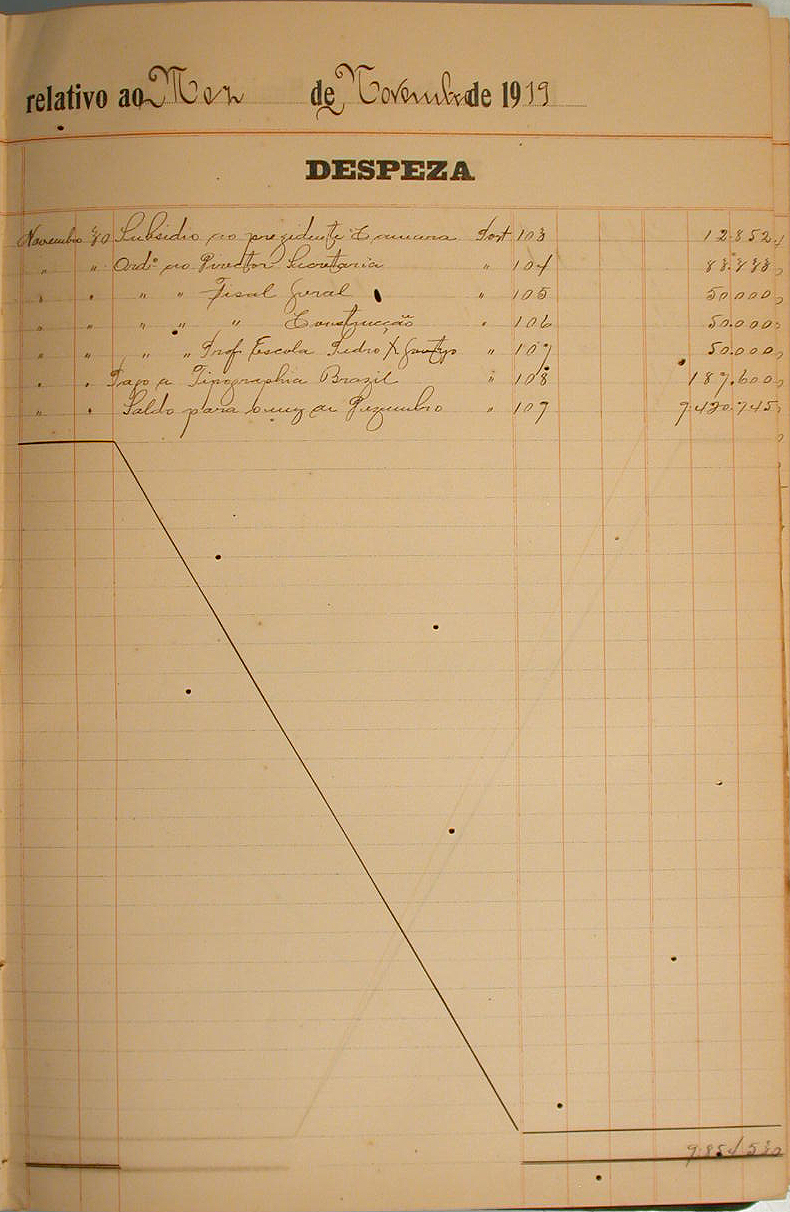 relativo ao Mez de Novembro de 1919
DESPEZA
Novembro 30 Subsidio ao prezidente Camara Port 103 12.852,
" " Ord.º ao Director Secretaria " 104 83.333,
" " " " Fiscal Geral " 105 50.000,
" " " " " Construcção " 106 50.000,
" " " " Prof. Escola Pedro " 107 50.000,
" " Pago a Tipographia Brazil " 108 187.600,
" " Saldo para o mez de Dezembro " 109 9.420.745,
9.854.530